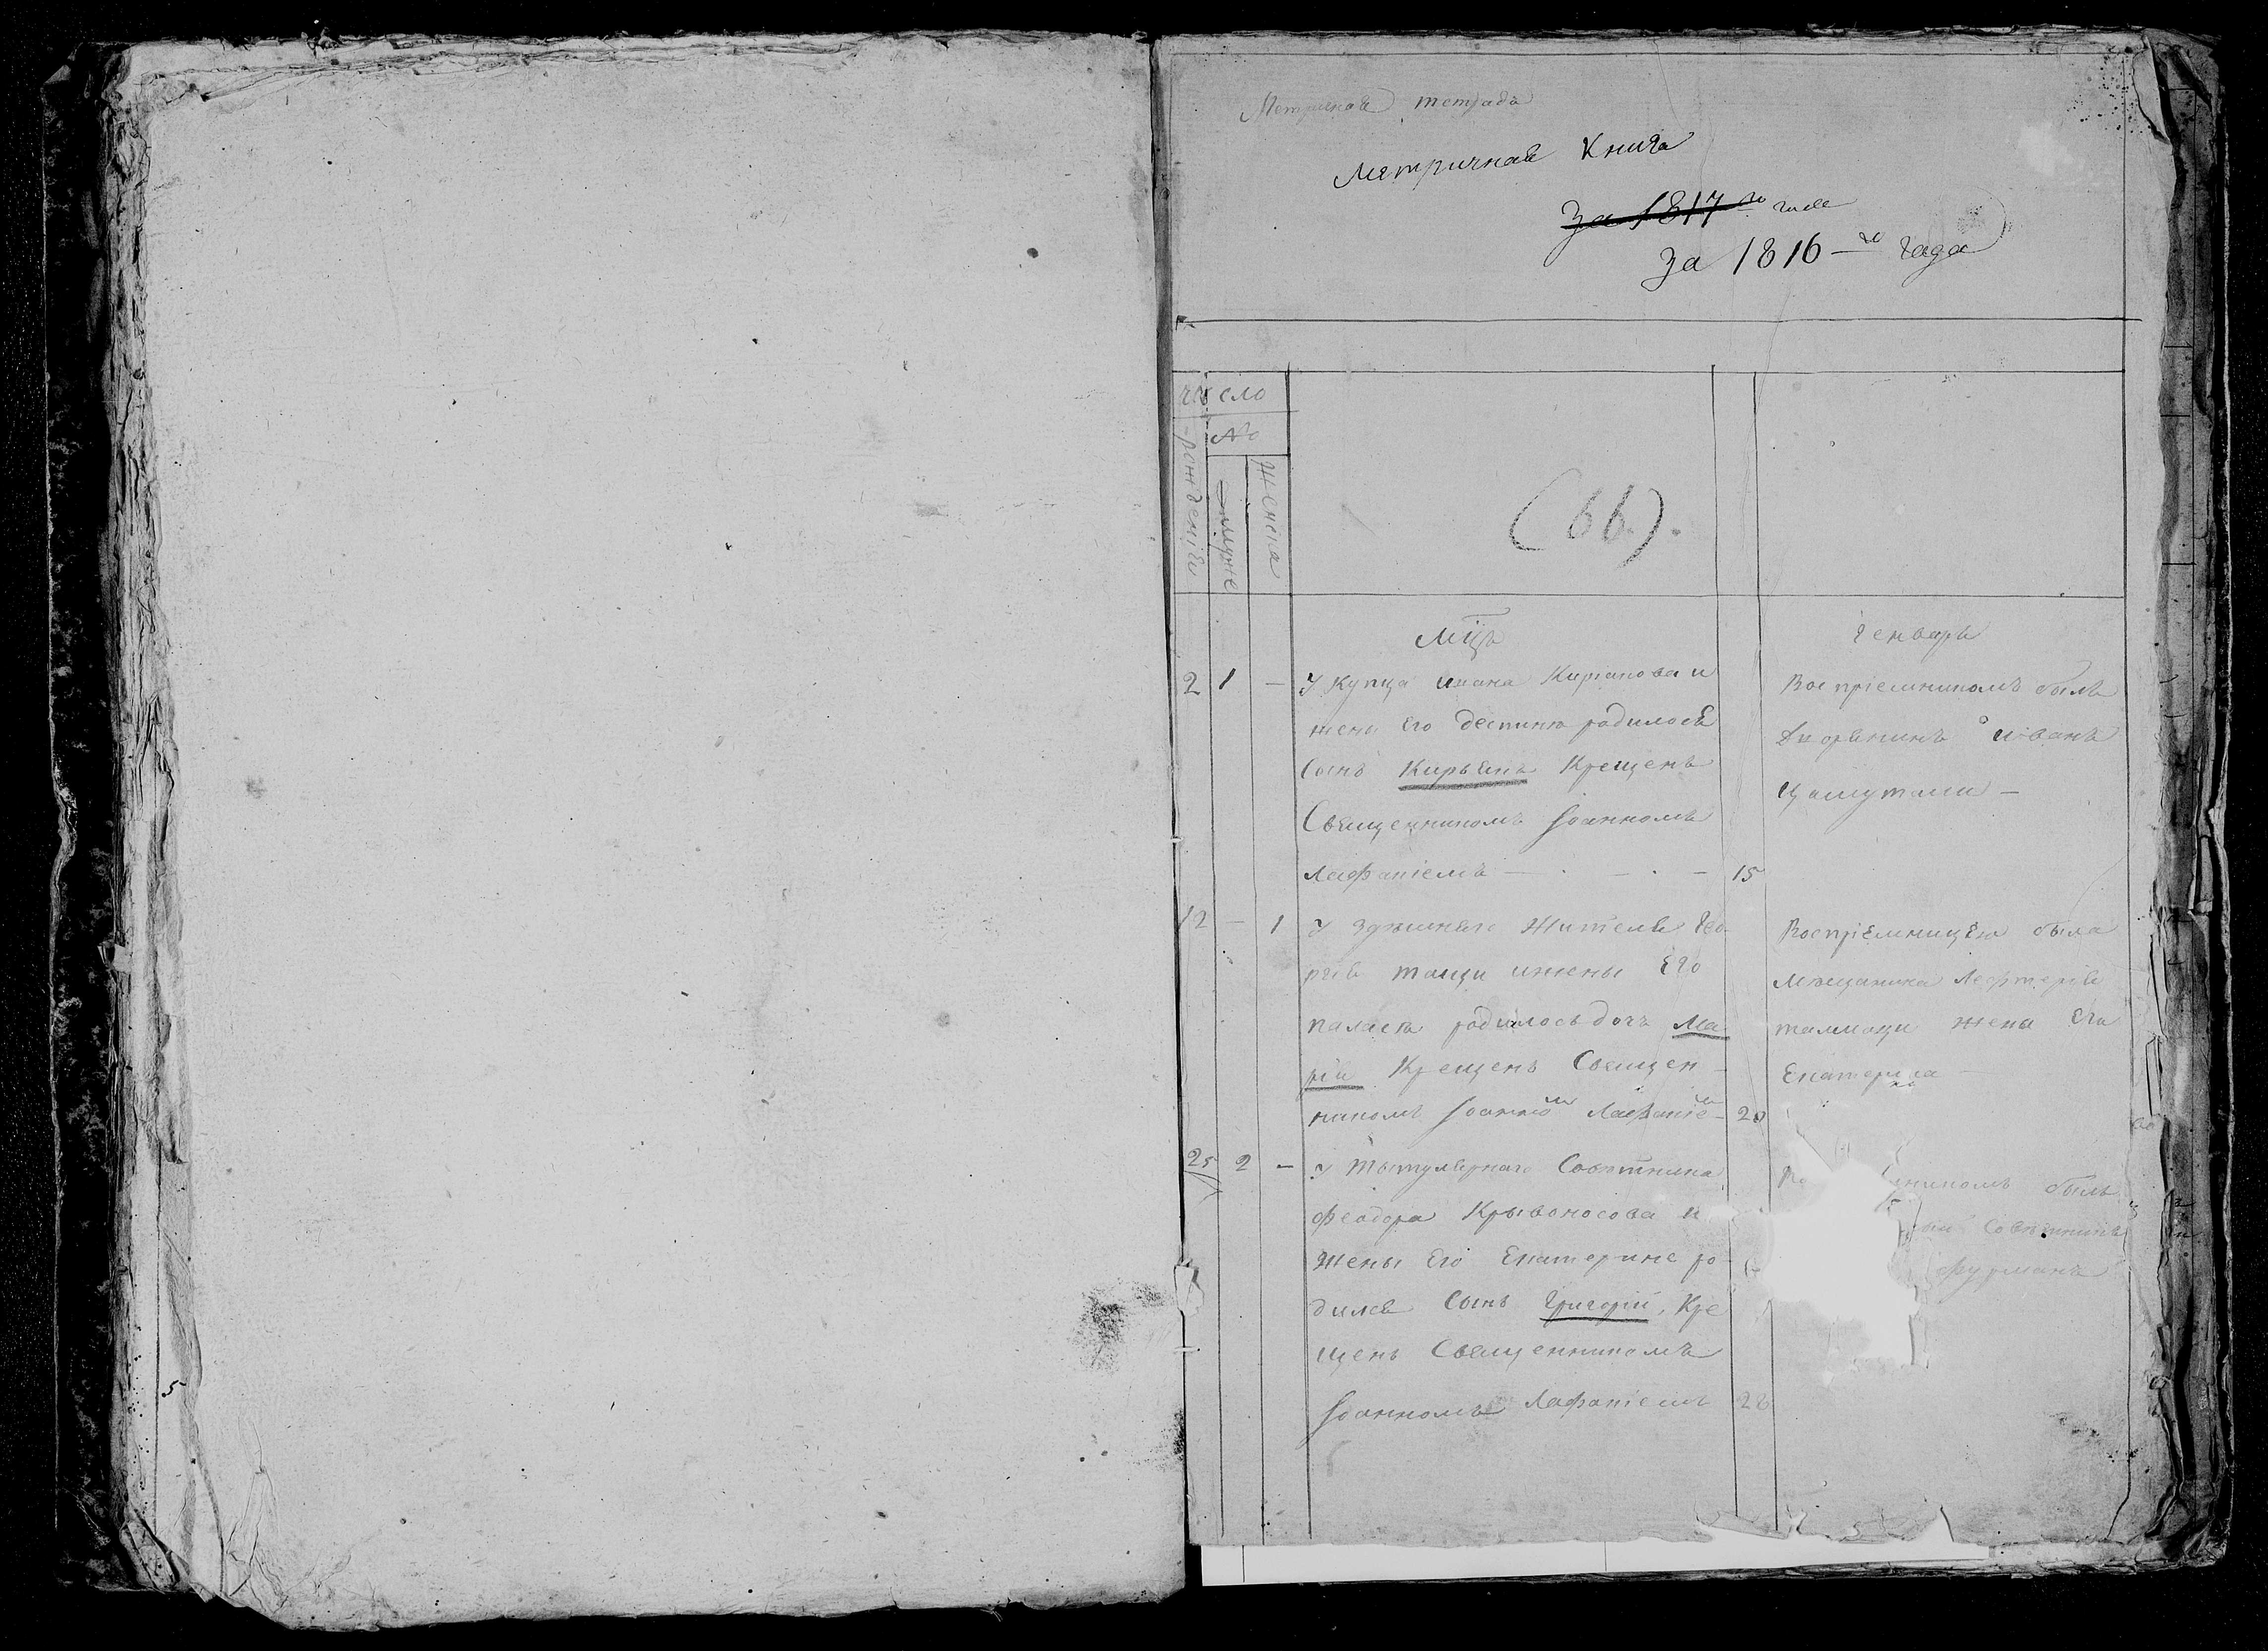 Метричная тетрадь
Метричная Книга
За 1817 го года
За 1816-го года
число
No
рожденія
муже
жена
(66).
Мцъ Генварь
2 1 — У Купца Ивана Кирianова и
жены Его деспины родилося
Сынъ Кирьянъ Крещенъ
Священникомъ Іоанномъ
— 15
Воспріемникомъ былъ
Дворянинъ Иванъ
12 — 1 У здѣшняго Жителя Гео
ргія тащи и жены Его
родилось дочь Ма
рія Крещенъ Священ
никомъ Іоанно 20
Воспріемницею была
мѣщанина
жена Его
Екатерина
25 2 — У Титулярнаго Совѣтника
Феодора Кривоносова и
жены Его Екатерине ро
дился Сынъ Григорій, Кре
щенъ Священникомъ
Іоанномъ 28
былъ
Совѣтникъ
Фурманъ
5